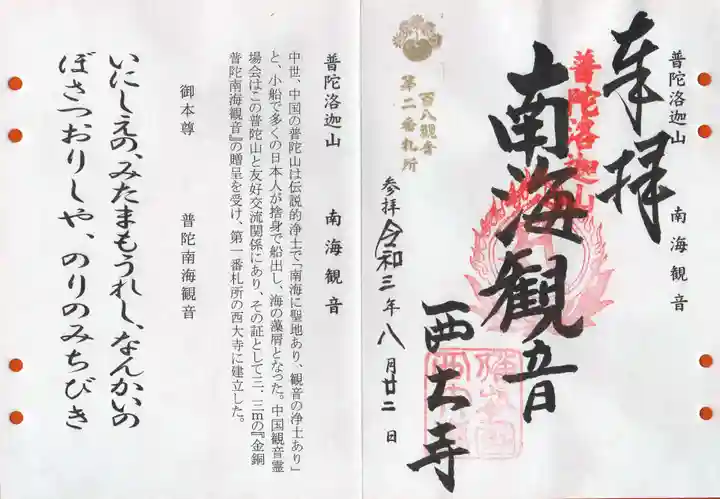 普陀洛迦山 南海観音
奉拝
普陀洛迦山
南海観音
西大寺
百八観音
第二番札所
参拝 令和三年八月廿二日
普陀洛迦山 南海観音
中世、中国の普陀山は伝説的浄土で「南海に聖地あり、観音の浄土あり」
と、小船で多くの日本人が捨身で船出し、海の藻屑となった。中国観音霊
場会はこの普陀山と友好交流関係にあり、その証として三．三mの『金銅
普陀南海観音』の贈呈を受け、第一番札所の西大寺に建立した。
御本尊 普陀南海観音
いにしえの、みたまもうれし、なんかいの
ぼさつおりしや、のりのみちびき